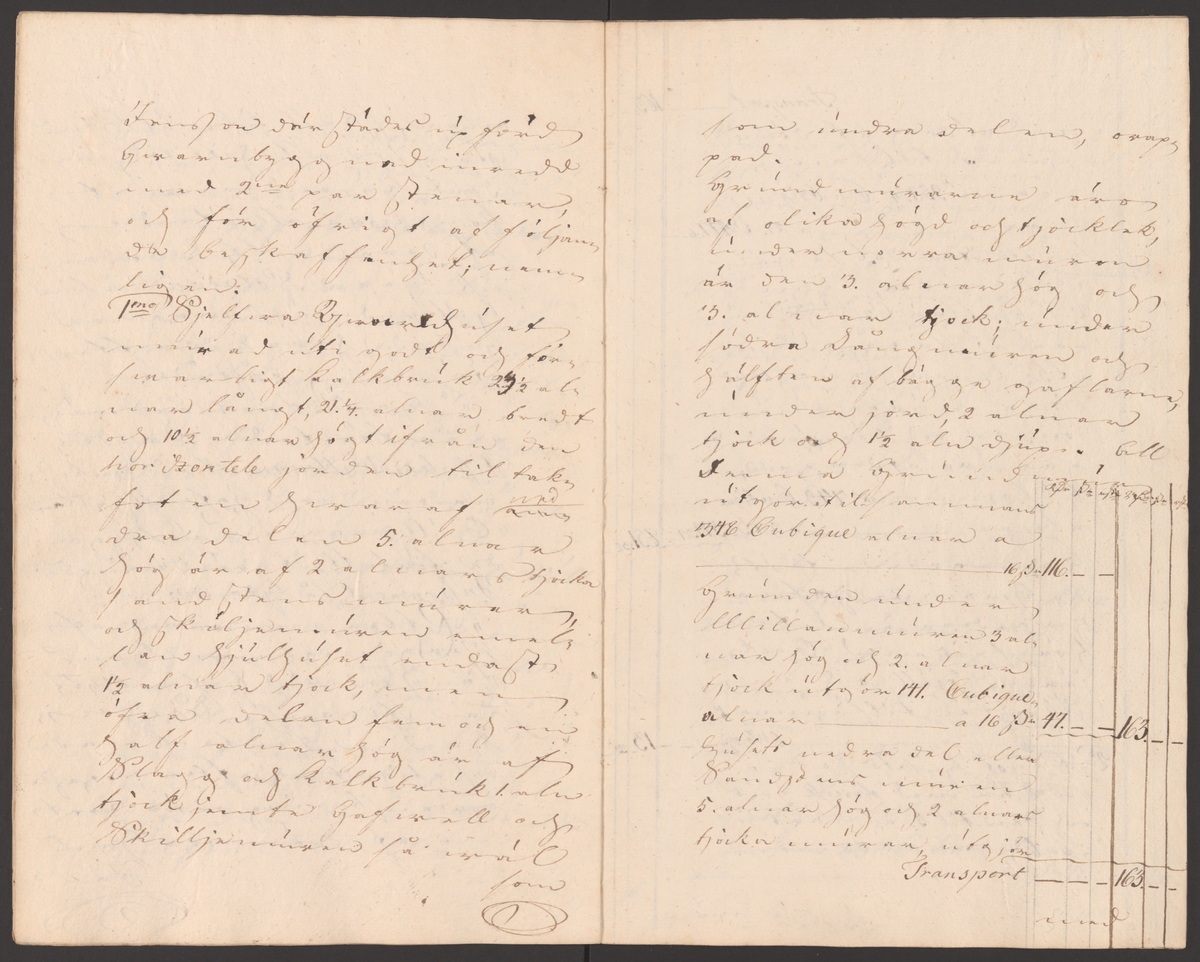 stensson där städes upförd
Qwarnbyggnad inredd
med 2ne par stenar
och för öfrigt af följan
de beskaffenhet; nem
ligen:
1mo Sjelfwa Qwarnhuset
murad uti godt och för
swarligt Kalkbruk 29½ al
nar långt, 21.¼. alnar bredt
och 10½ alnar högt ifrån den
horizontele jorden til tak
foten hwaraf ned
dra delen 5. alnar
hög är af 2 alnars tjocka
sandstens murar
och skiljemuren emel
lan hjulhuset endast
1½ alnar tjock, men
öfra delen fem och en
half alnar hög är af
Slagg och Kalkbruk 1. aln
tjock jemte Gafwell och
Skilljemuren så wäl
som
som undra delen, orap
pad.
Grundmurarne äro
af olika högd och tjocklek,
under norra muren
är den 3. alnar hög och
3. alnar tjock; under
södra Långmuren och
hälften af bägge gaflarne,
under jord, 2 alnar
tjock och 1½ aln djup.
Denna Grundmur
utgör tilsammans
348 Cubique alnar a
16 s. 116. — —
Grunden under
Mellanmuren 3 al
nar hög och 2. alnar
tjock utgör 141. Cubique
alnar a 16 s. 47. — — 163. — —
Husets nedra del eller
Sandstens muren
5. alnar hög och 2 alnars
tjocka murar, utgjör
Transport — — — 163. — —
med